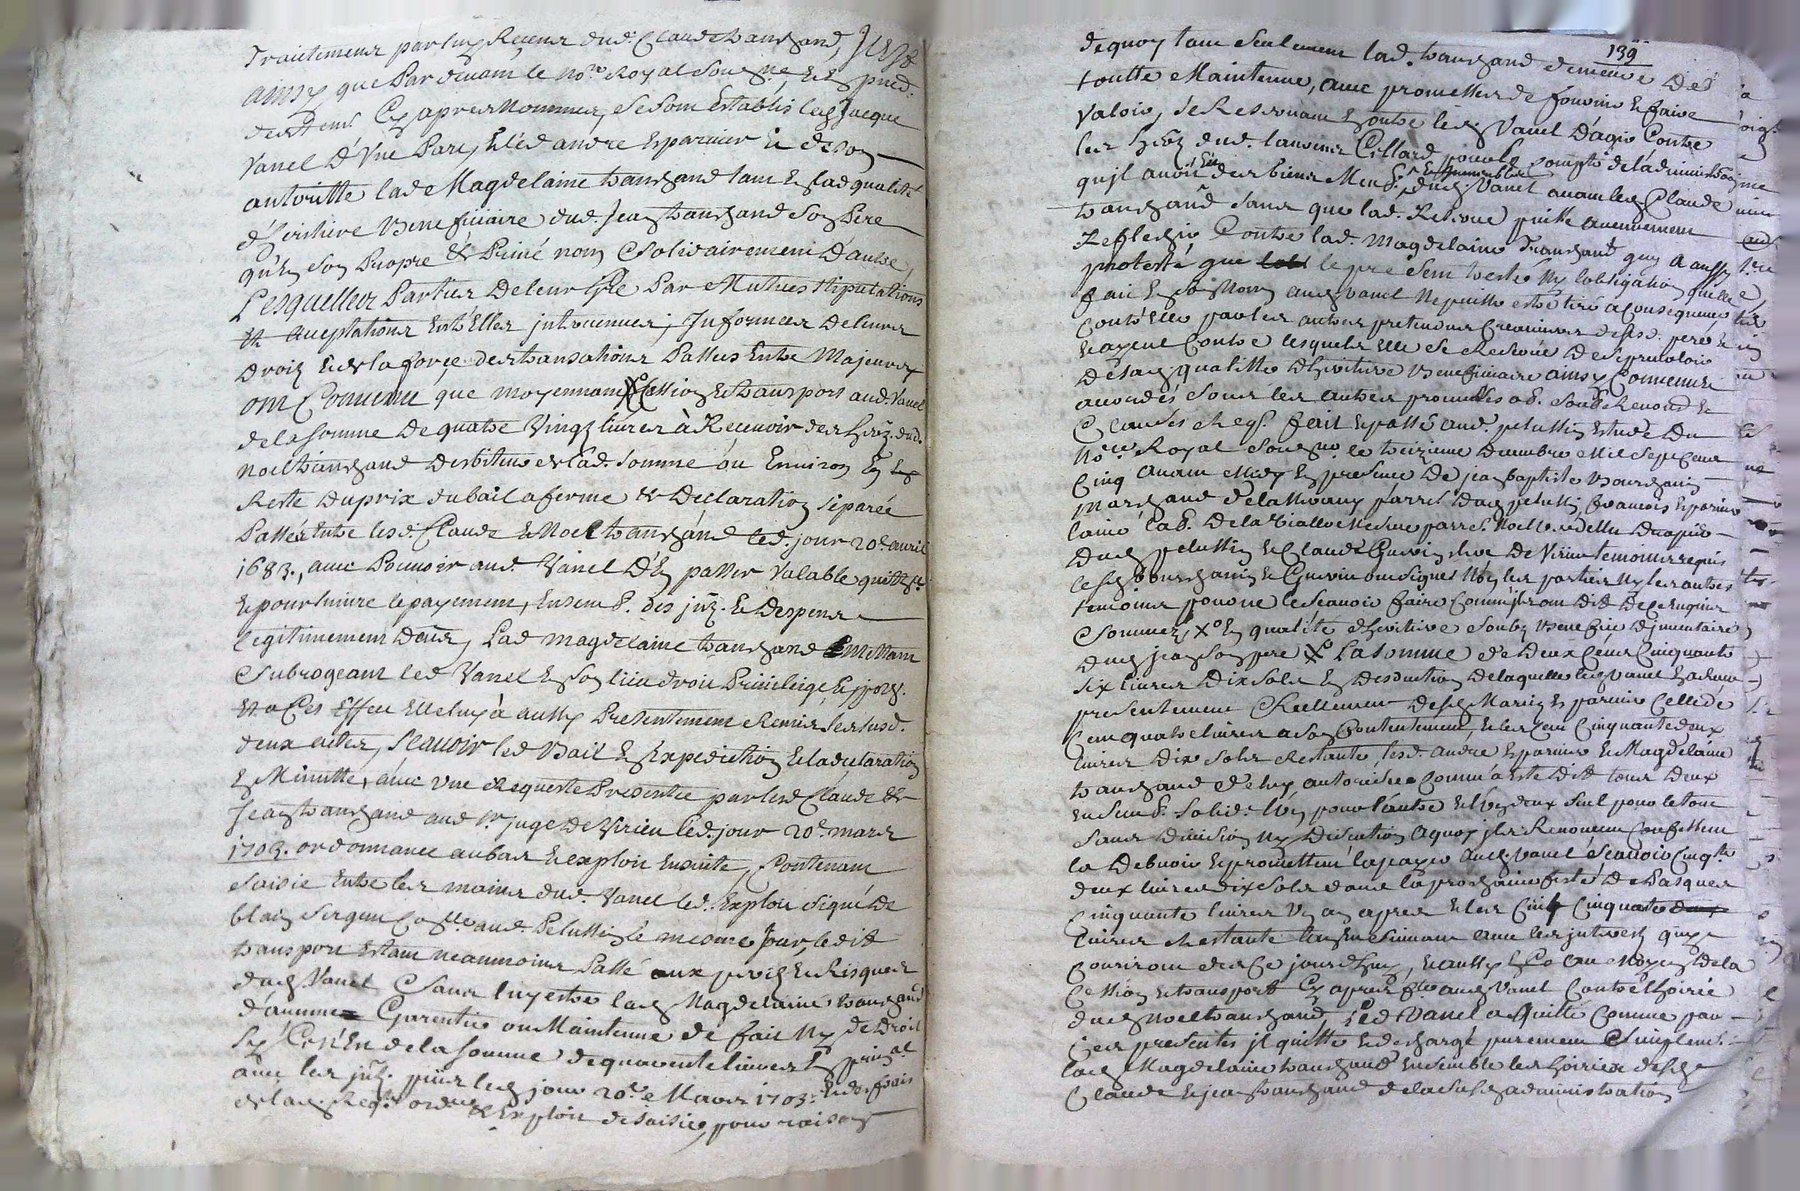 Traitement par luy Receus dud. Claude tranchand,
ainsy que Par devant le no.re Royal soussig.né, Et pnts.
des tem. Cy apres Nommes, se sont Establis led. Jacque
Vanel D'Une Part, Et led. andre Eparvier Et de son
autoritte lad. Magdelaine tranchand tant En sad. qualitté
d'heritiere Beneficiaire dud. Jean tranchand son Pere
qu'En son Propre & Privé nom Solidairement D'autre,
Lesquelles Parties De leur gré Par Mutues stipulations
Et aceptations Entr'Elles intervenues, Informées De leurs
Droits Et de la force des transations Passées Entre Majeurs
ont Convenu que moyennant Cession Et transport aud. Vanel
de la somme De quatre Vingt livres à Recevoir des hers. dud.
noel tranchand Debiteur de lad. somme ou Environ En
Reste Du prix du bail a ferme & Declaration séparée
Passée Entre lesd. Claude & Noel tranchand led. jour 20e. avril
1683., avec Pouvoir aud. Vanel D'En passer Valable quittce.
Et poursuivre le payement, Ensemb. des jnts. Et Despens
legitimement Deus, Lad. Magdelaine tranchand Emettant
Subrogeant led. Vanel En son lieu droit Privileige &
Et a Ces Effets Elle luy à aussy Presentement Remis les susd.
deux actes, Scavoir led. Bail En Expedition Et la declaration
En Minutte, avec Une Requeste Presentée par lesd. Claude &
Jean tranchand aud. Sr. juge De Virieu led. jour 20e. mars
1703. ordonnance au bas & exploit Ensuite, Contenant
saisie Entre les mains dud. Vanel led. Exploit signé De
blain sergent aud. Pelussin le mesme jour, ledit
transport Estant neammoins Passé aux perils Et Risques
dud. Vanel Sans luy estre lad. Magdelaine tranchand
d'aucune Garentie ou Maintenue de fait Ny de Droit
Si Ce n'Est de la somme de quarente livres En prinal.
avec les jnts. puis led. jour 20e. Mars 1703. Et des frais
de lad. Reqte. ordce. & Exploit de saisie, pour raison
139
de quoy tant seulement lad. tranchand demeure De
toutte Maintenue, avec promesses de fournir & faire
Valoir, se Reservant En outre led. Vanel D'agir Contre
les hers. dud. laurens Gillard pour le compte de l'administration
qu'jl avoit Eüe des biens Meub. & Immeubles dud. Vanel avant led. Claude
tranchand sans que lad. Reserve puisse aucunement
Reflechir Contre lad. Magdelaine tranchand quy a aussy
protesté que le present traitté Ny l'obligation qu'elle
fait En son Nom aud. Vanel Ne puisse estre tiré a Consequence
Contr'Elle par les autres pretendus Creanciers desd. pere &
ayeul Contre lesquels Elle se Reserve De se prevaloir
De sad. qualitté D'heritiere Beneficiaire ainsy Convenu
accordés sous les autres promesses ob. soub. Renond. &
Clauses Req. fait & passé aud. pelussin Estude Du
No.re Royal sousig.né le treizieme Decembre Mil Sept Cent
Cinq avant Midy En presence De jean baptiste Bourchanin
marchand De la Mivany parress. dud. pelussin, francois Eparvier
laine lab. De la Vialle Mesme parress. Noel
Dud. pelussin & Claude Guerin De Virieu temoins requis
lesd. bourchanin & Guerin ont signés Non les parties Ny les autres
temoins pour ne le scavoir faire Comm'jls ont dit De Ce Enquis
Sommés, Xo En qualité d'heritiere soubz Benefice D'inventaire
Dud. jean son pere Xo La Somme de Deux Cens Cinquante
six livres Dix sols En Desduction De laquelle led. Vanel a Receu
presentement & Reellement Desd. Mariés Eparvier Celle de
Cent quatre livres a son Contentement, & les Cent Cinquante deux
livres Dix sols Restants, lesd. andre Eparvier & Magdelaine
tranchand de luy autorisée Comm'a Esté Dit tous Deux
Ensemb. solid. l'un pour l'autre & l'un deux seul pour le tout
sans Division Ny Discution a quoy jls Renoncent Confessent
la Debvoir & promettent la payer aud. Vanel Scavoir Cinqte.
deux livres dix sols dans la prochaine feste De Pasques
Cinquante livres Un an apres & les Cinquante
livres Restante l'année suivant avec les jnterets quy
Courront des Ce jourd'huy, & aussy En Ce Au Moyen De la
Cession & transport Cy apres fte. aud. Vanel Contre l'hoirie
dud. Noel tranchand, led. Vanel a quitté Comme par
Ces presentes jl quitte & decharge purement & Simplemt.
lad. Magdelaine tranchand Ensemble les hoiries desd.
Claude & jean tranchand de la susd. administration